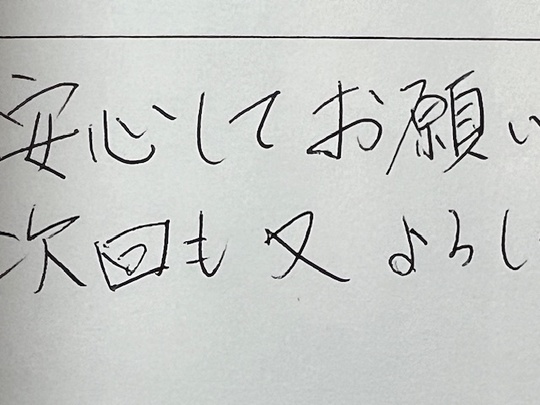 安心してお願い
次回も又 よろし